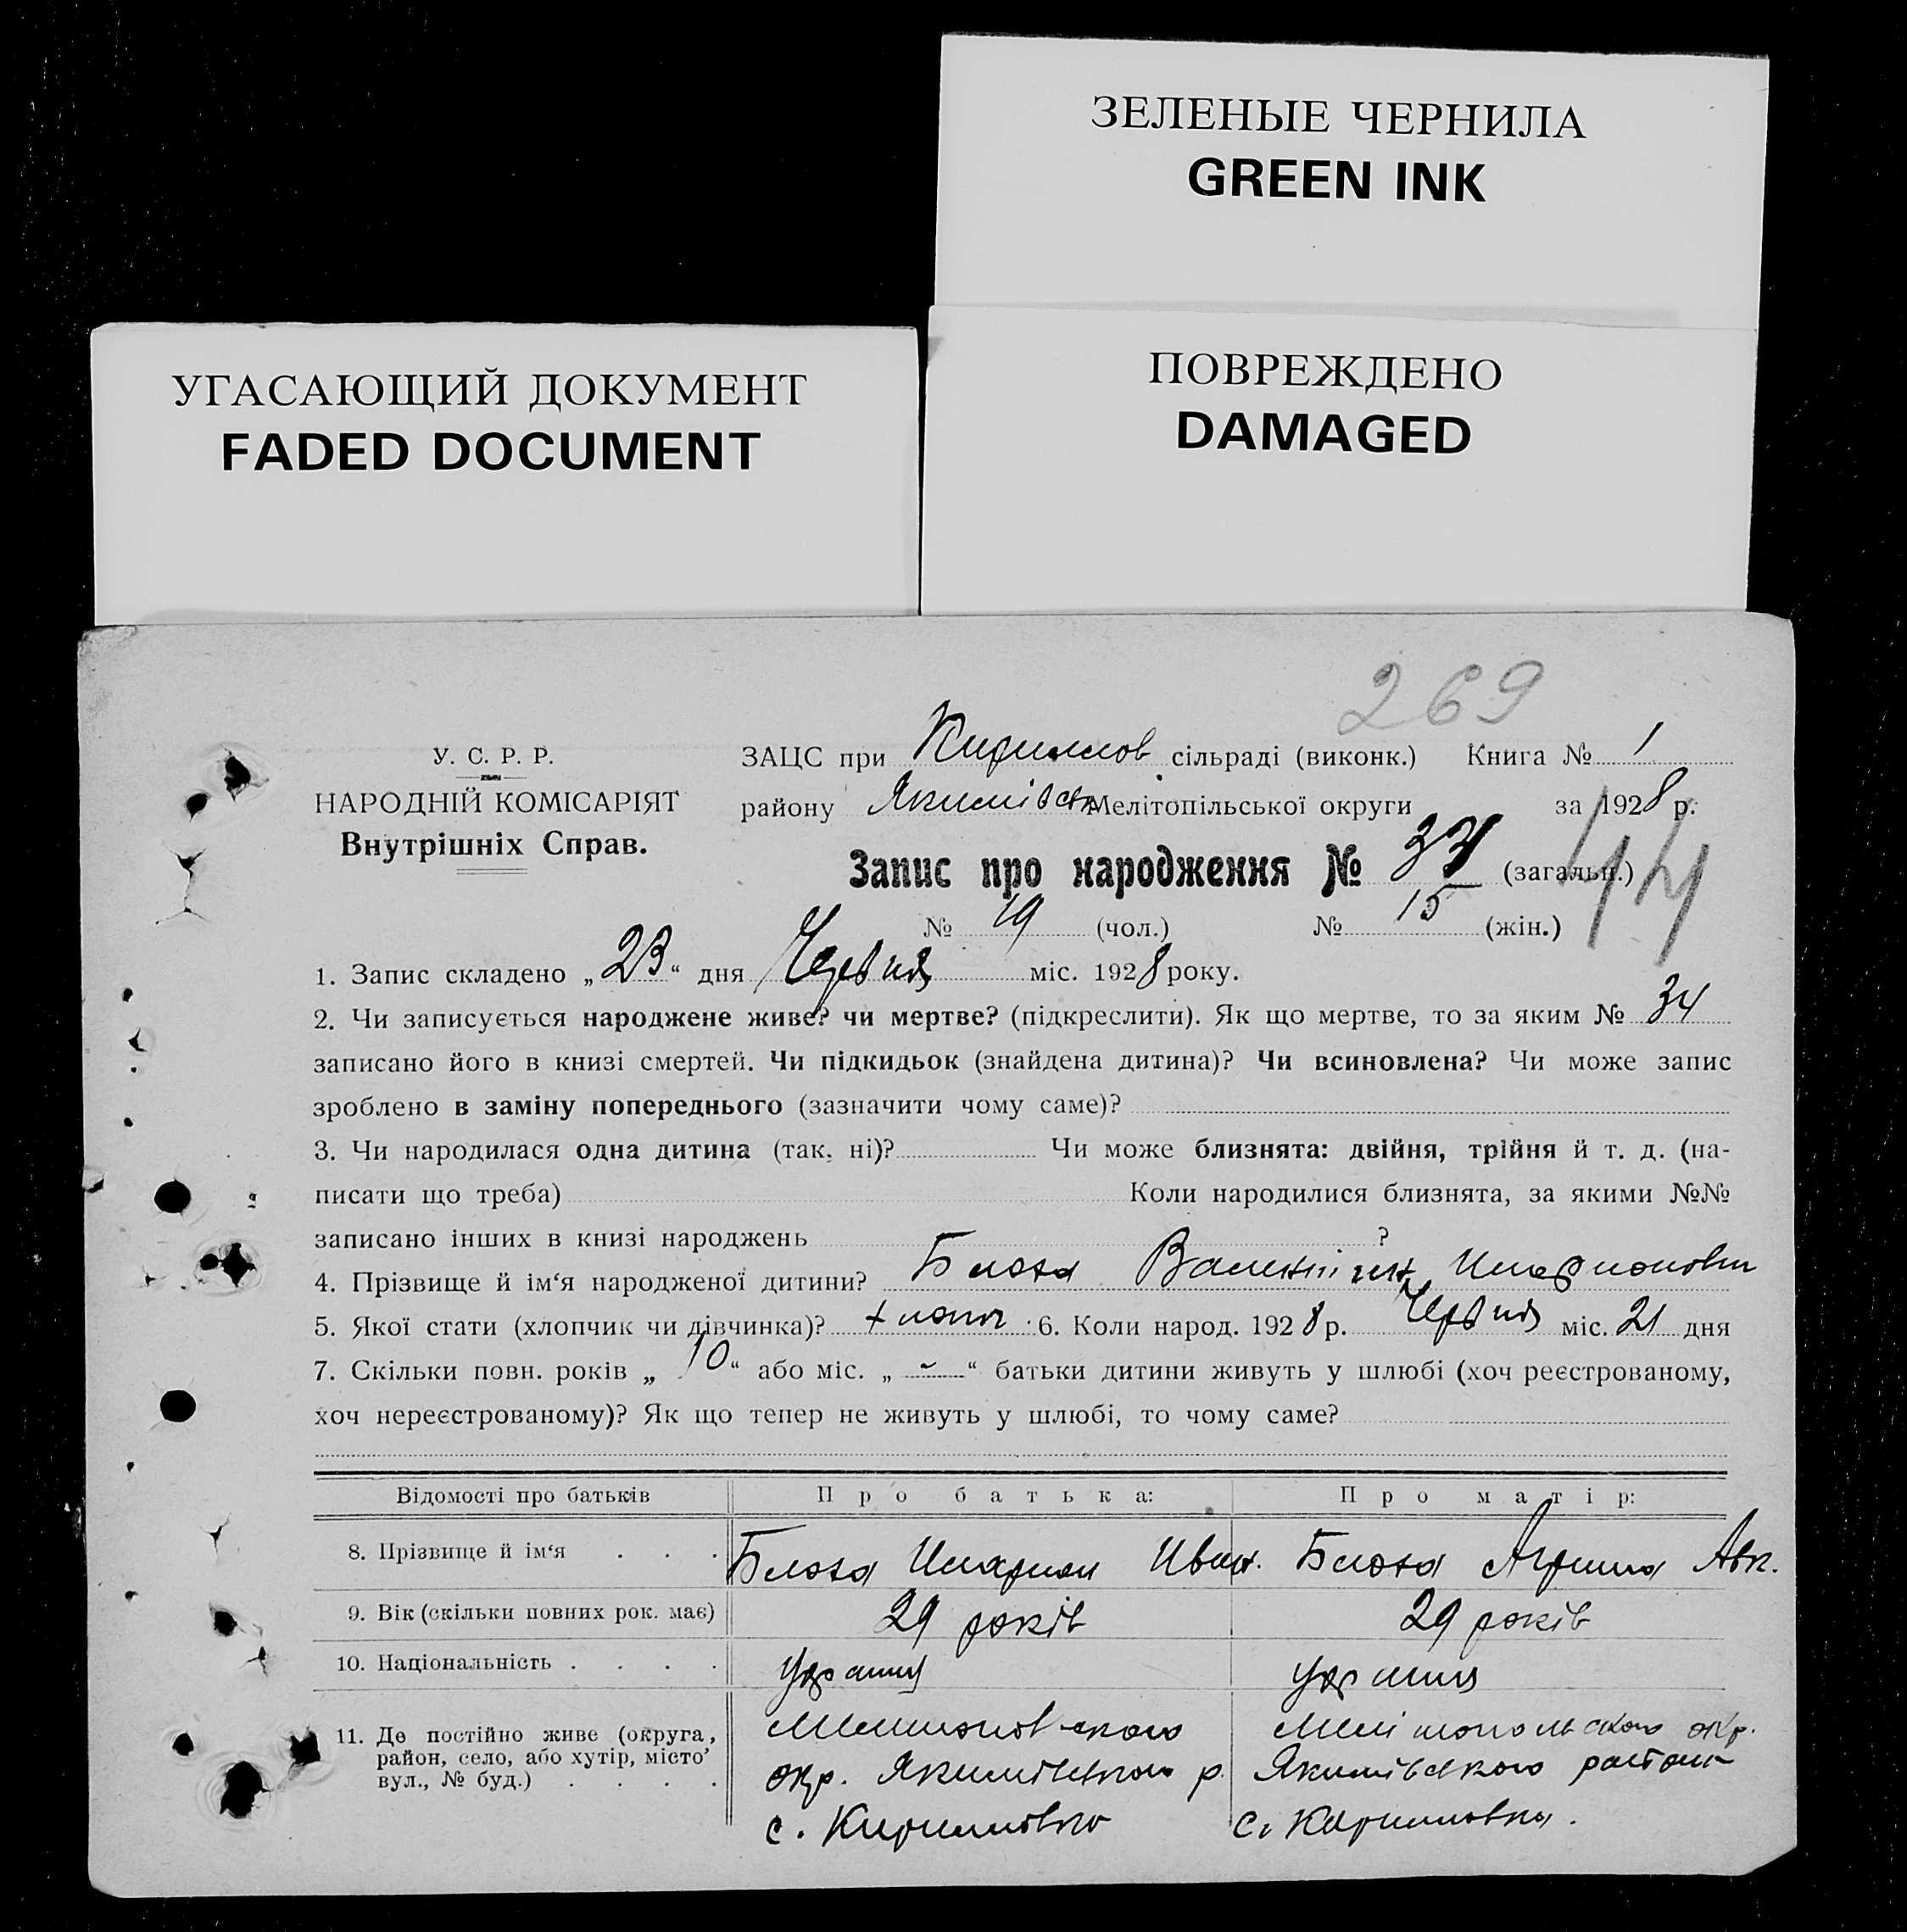 ЗЕЛЕНЫЕ ЧЕРНИЛА
GREEN INK
УГАСАЮЩИЙ ДОКУМЕНТ
FADED DOCUMENT
ПОВРЕЖДЕНО
DAMAGED
269
У. С. Р. Р.
НАРОДНІЙ КОМІСАРІЯТ
Внутрішніх Справ.
ЗАЦС при Кирилов. сільраді (виконк.) Книга № 1
району Якимівськ Мелітопільської округи за 1928 р.
Запис про народження № (загальн.) 44
№ 19 (чол.) № 15 (жін.)
1. Запис складено „23“ дня Червня міс. 1928 року.
2. Чи записується народжене живе? чи мертве? (підкреслити). Як що мертве, то за яким № 34
записано його в книзі смертей. Чи підкидьок (знайдена дитина)? Чи всиновлена? Чи може запис
зроблено в заміну попереднього (зазначити чому саме)?
3. Чи народилася одна дитина (так, ні)? Чи може близнята: двійня, трійня й т. д. (на-
писати що треба) Коли народилися близнята, за якими №№
записано інших в книзі народжень ?
4. Прізвище й ім‘я народженої дитини? Блоха Валентін Иларионович
5. Якої стати (хлопчик чи дівчинка)? хлопч 6. Коли народ. 1928 р. Червня міс. 21 дня
7. Скільки повн. років „10“ або міс. „ - “ батьки дитини живуть у шлюбі (хоч реєстрованому,
хоч нереєстрованому)? Як що тепер не живуть у шлюбі, то чому саме?
Відомості про батьків Про батька: Про матір:
8. Прізвище й ім‘я . . . Блоха Иларион Иван. Блоха Агрипа Авк.
9. Вік (скільки повних рок. має) 29 років 29 років
10. Національність . . . . 
11. Де постійно живе (округа,
район, село, або хутір, місто
вул., № буд.) . . . .
окр. Якимівського р.
с. Кирилівка
Мелітопольського окр.
Якимівського району
с. Кириловка.